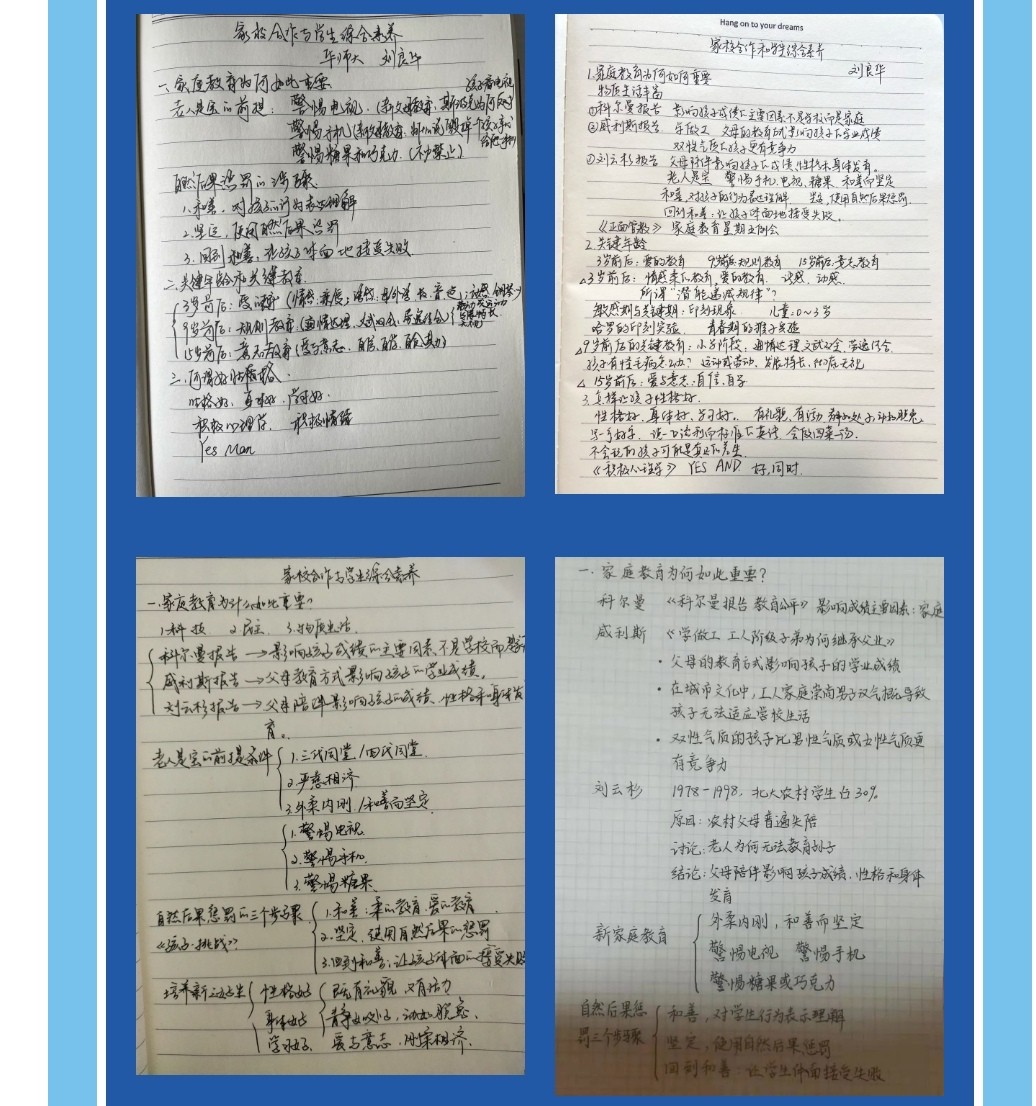 家校合作与学生综合素养
华师大 刘良华
一、家庭教育为何如此重要
老人是宝的前提: 警惕电视.
警惕手机
警惕糖果和巧克力.
自然后果惩罚的三步骤
1.和善, 对孩子的行为表示理解
2.坚定, 使用自然后果惩罚
3.回到和善, 让孩子体面地接受失败
二.关键年龄和关键教育
3岁前后:
9岁前后: 规则教育
15岁前后: 意志教育
三.
性格好, 身体好, 学习好.
积极心理学, 积极情绪
Yes Man
Hang on to your dreams
家校合作和学生综合素养
刘良华
1.家庭教育为何如何重要
物质生活丰富
①科尔曼报告 影响孩子成绩的主要因素不是学校而是家庭
②威利斯报告 学做工 父母的教育方式影响孩子的学业成绩
双性气质的孩子更有竞争力
③刘云杉报告 父母陪伴影响孩子的成绩,性格和身体发育.
老人是宝 警惕手机,电视,糖果 和善而坚定
和善,对孩子的行为表达理解 坚定,使用自然后果惩罚.
回到和善:让孩子体面地接受失败.
《正面管教》 家庭教育星期五例会
2.关键年龄
3岁前后:爱的教育 9岁前后规则教育 15岁前后意志教育
△3岁前后: 情感亲的教育 爱的教育. 动感.
所谓"潜能递减规律"?
敏感期与关键期:印刻现象 儿童:0~3岁
哈罗的印刻实验 青春期的猴子实验
△9岁前后的关键教育:
孩子有性毛病怎么办? 运动或劳动、发展特长,
△ 15岁前后:爱与意志.自信,自学
3.怎样让孩子性格好.
性格好,身体好,学习好. 有礼貌,有活力
《积极心理学》 YES AND 好,同时.
家校合作与学生综合素养
一.家庭教育为什么如此重要?
1.科技 2.民主. 3.物质生活.
科尔曼报告→影响孩子成绩的主要因素不是学校而是家
威利斯报告→父母教育方式影响孩子的学业成绩.
刘云杉报告→父母陪伴影响孩子的成绩、性格和身体发
育。
老人是宝的前提条件
1.三代同堂/四代同堂
2.严慈相济
3.外柔内刚/和善而坚定
1.警惕电视
2.警惕手机.
3.警惕糖果.
自然后果惩罚的三个步骤
《孩子:挑战》
1.和善:柔的教育.爱的教育
2.坚定,使用自然后果的惩罚
3.回到和善;让孩子体面的接受失败
培养新三好学生
性格好
身体好
学习好
既有礼貌,又有活力
静如处子,动如脱兔.
爱与意志,刚柔相济.
一、家庭教育为何如此重要?
科尔曼 《科尔曼报告 教育公平》 影响成绩主要因素:家庭
威利斯 《学做工 工人阶级子弟为何继承父业》
·父母的教育方式影响孩子的学业成绩
·在城市文化中,工人家庭崇尚男子汉气概导致
孩子无法适应学校生活
·双性气质的孩子比男性气质或女性气质更
有竞争力
刘云杉 1978-1998, 北大农村学生占30%
原因:农村父母普遍失陪
讨论:老人为何无法教育好孙子
结论:父母陪伴影响孩子成绩、性格和身体
发育
新家庭教育
外柔内刚,和善而坚定
警惕电视 警惕手机
警惕糖果或巧克力
自然后果惩
罚三个步骤
和善,对学生行为表示理解
坚定,使用自然后果惩罚
回到和善:让学生体面接受失败